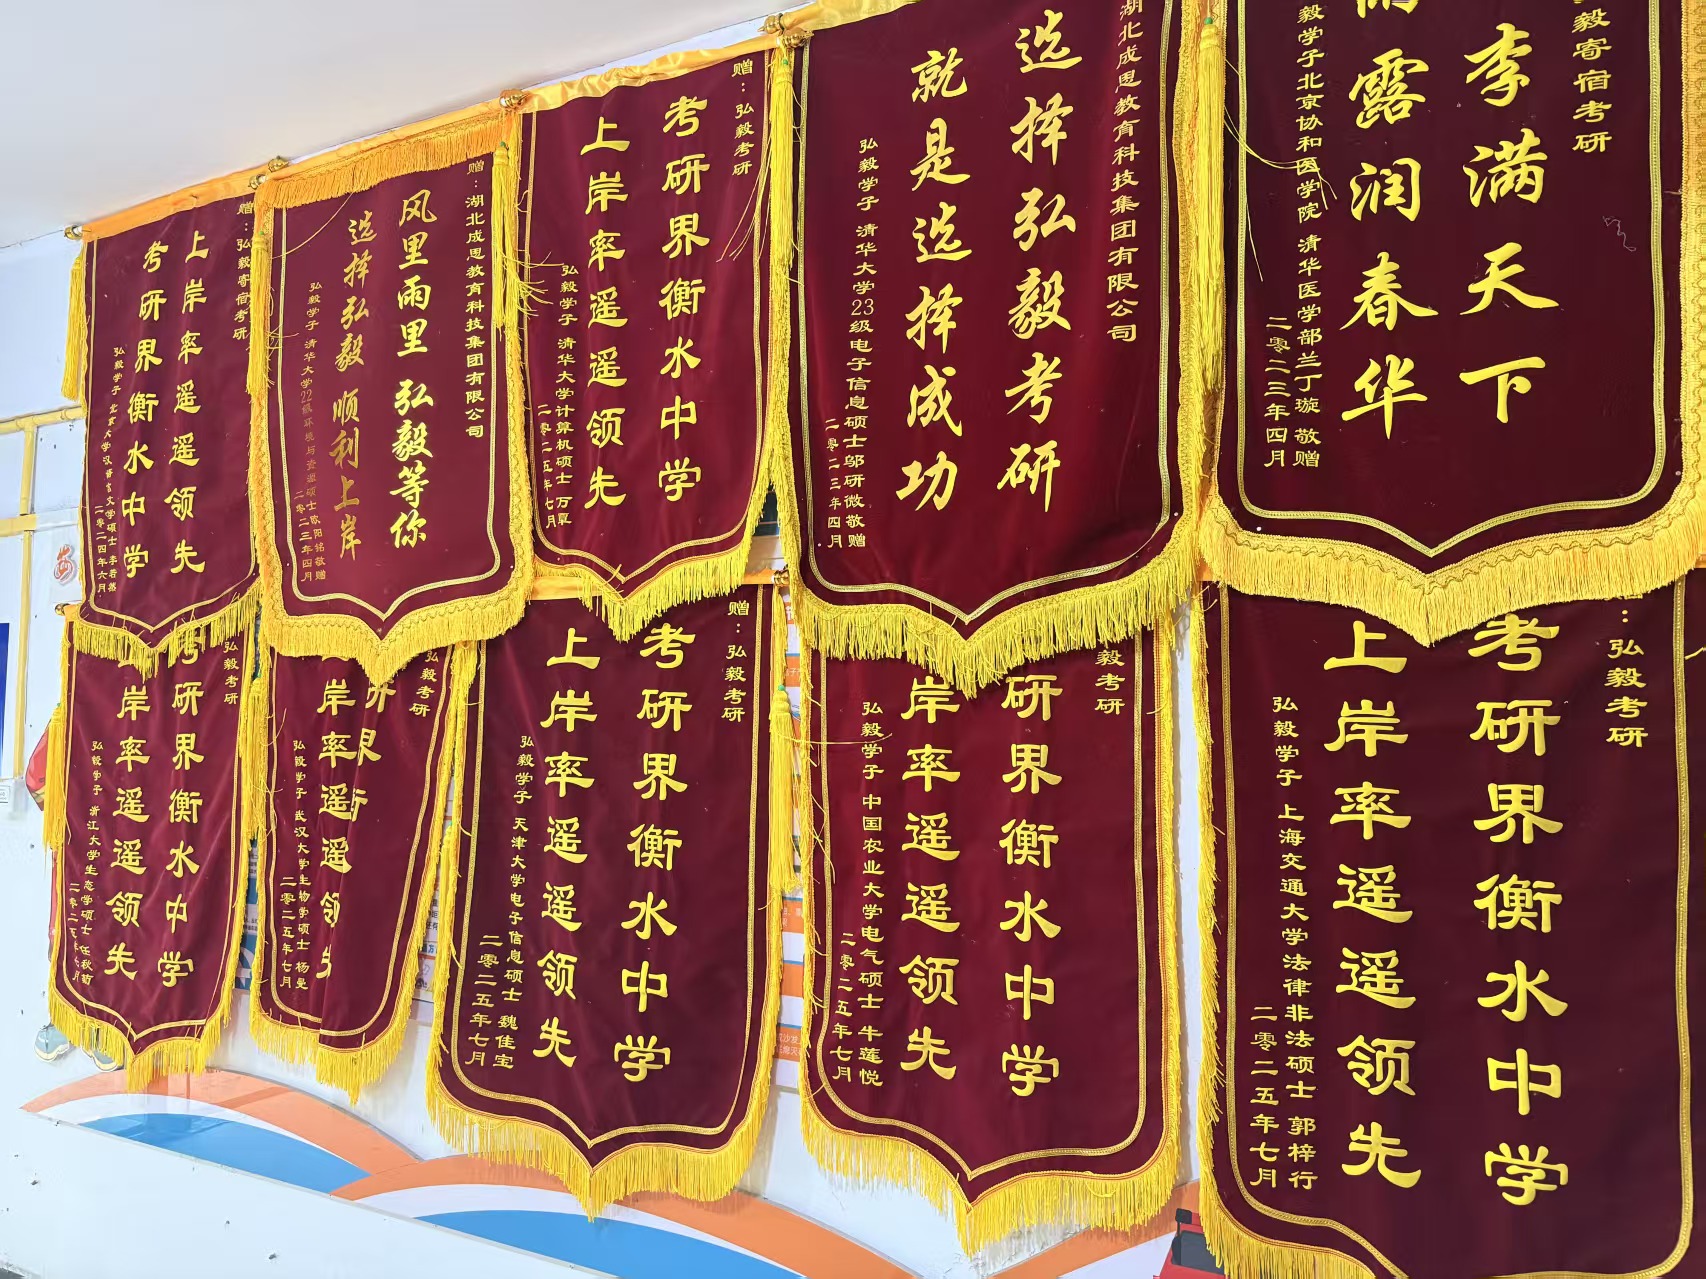 赠：弘毅寄宿考研
上岸率遥遥领先
考研界衡水中学
弘毅学子 北京大学汉语言文学硕士 李若
二零二四年六月
赠：湖北成恩教育科技集团有限公司
风里雨里 弘毅等你
选择弘毅 顺利上岸
弘毅学子 清华大学22级环境与资源硕士 欧阳铭敬赠
二零二三年四月
赠：弘毅考研
考研界衡水中学
上岸率遥遥领先
弘毅学子 清华大学计算机硕士 万草
二零二五年七月
湖北成恩教育科技集团有限公司
选择弘毅考研
就是选择成功
弘毅学子 清华大学23级电子信息硕士邬研微敬赠
二零二三年四月
毅寄宿考研
李满天下
露润春华
毅学子北京协和医学院 清华医学部兰丁璇 敬赠
二零二三年四月
弘毅考研
考研界衡水中学
上岸率遥遥领先
弘毅学子 浙江大学生态学硕士 任秋菊
二零二五年七月
毅考研
研界
岸率遥遥领
弘毅学子 武汉大学生物学硕士 杨曼
二零二五年七月
赠：弘毅考研
考研界衡水中学
上岸率遥遥领先
弘毅学子 天津大学电子信息硕士 魏佳宝
二零二五年七月
毅考研
研界衡水中学
岸率遥遥领先
弘毅学子 中国农业大学电气硕士 牛莲悦
二零二五年七月
：弘毅考研
考研界衡水中学
上岸率遥遥领先
弘毅学子 上海交通大学法律非法硕士 郭梓行
二零二五年七月